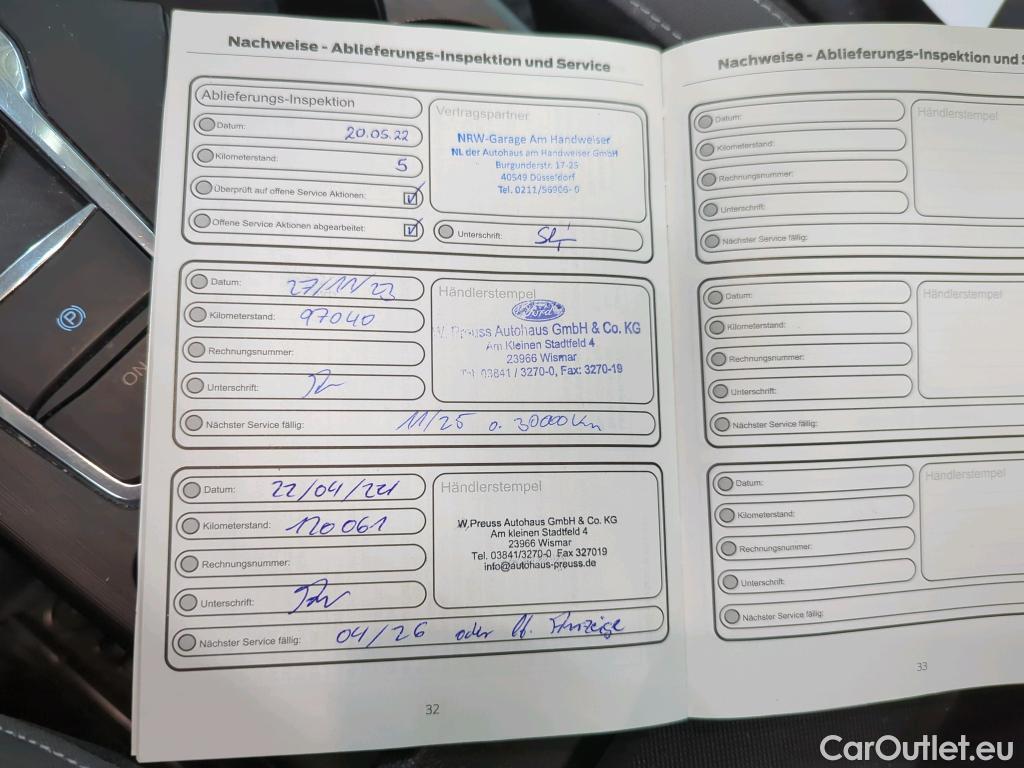 Nachweise - Ablieferungs-Inspektion und Service
Ablieferungs-Inspektion
Datum: 20.05.22
Kilometerstand: 5
Überprüft auf offene Service Aktionen:
Offene Service Aktionen abgearbeitet:
Vertragspartner
NRW-Garage Am Handweiser
NL der Autohaus am Handweiser GmbH
Burgunderstr. 17-25
40549 Düsseldorf
Tel. 0211/56906-0
Unterschrift:
Datum: 27/11/23
Kilometerstand: 97040
Rechnungsnummer:
Unterschrift:
Händlerstempel
Ford
W. Preuss Autohaus GmbH & Co. KG
Am Kleinen Stadtfeld 4
23966 Wismar
Tel. 03841 / 3270-0, Fax: 3270-19
Nächster Service fällig: 11/25 o. 30000 Km
Datum: 22/04/24
Kilometerstand: 120061
Rechnungsnummer:
Unterschrift:
Händlerstempel
W.Preuss Autohaus GmbH & Co. KG
Am kleinen Stadtfeld 4
23966 Wismar
Tel. 03841/3270-0 Fax 327019
info@autohaus-preuss.de
Nächster Service fällig: 04/26 oder lf. Anzeige
32
Nachweise - Ablieferungs-Inspektion und S
Datum:
Kilometerstand:
Rechnungsnummer:
Unterschrift:
Händlerstempel
Nächster Service fällig:
Datum:
Kilometerstand:
Rechnungsnummer:
Unterschrift:
Händlerstempel
Nächster Service fällig:
Datum:
Kilometerstand:
Rechnungsnummer:
Unterschrift:
Händlerstempel
Nächster Service fällig:
33
P
ON
CarOutlet.eu